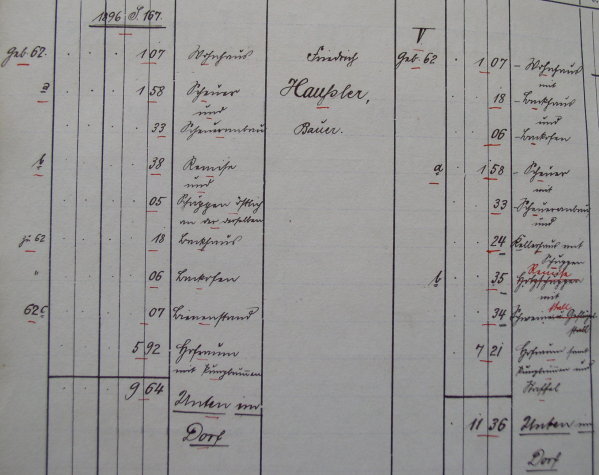 1896 S. 167.
Geb. 62. 1 07 Wohnhaus
a 1 58 Scheuer
und
33 Scheueranbau
b 38 Remise
und
05 Schuppen östlich
an der derselben
zu 62 18 Backhaus
" 06 Backofen
62c 07 Bienenstand
5 92 Hofraum
mit Pumpbrunnen
9 64 Unten im
Dorf
Friedrich
Haußler,
Bauer.
V
Geb. 62 1 07 - Wohnhaus
mit
18 - Backhaus
und
06 - Backofen
a 1 58 - Scheuer
mit
33 - Scheueranbau
und
24 Kellerhaus mit
Schuppen
Remise
b 35 Holzschuppen
mit
stall
34 Schweine u. Geflügel-
stall
7 21 Hofraum samt
Pumpbrunnen und
Staffel
11 36 Unten im
Dorf